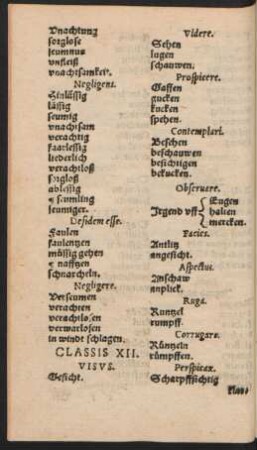 Vnachtung
sorglose
seumnus
vnfleiß
vnachtsamkeit.
Negligens.
Hinlässig
lässig
seumig
vnachtsam
verachtig
faarlessig
liederlich
verachtloß
sorgloß
ablessig
seumling
seumiger.
Desidem esse.
Faulen
faulentzen
müssig gehen
nafftzen
schnarcheln.
Negligere.
Verseumen
verachten
verachtlosen
verwarlosen
in windt schlagen.
CLASSIS XII.
VISVS.
Gesicht.
Videre.
Sehen
lugen
schauwen.
Prospicere.
Gaffen
gucken
kucken
spehen.
Contemplari.
Besehen
beschauwen
besichtigen
bekucken.
Obseruare.
Irgend vff
Eugen
halten
mercken.
Facies.
Antlitz
angesicht.
Aspectus.
Anschaw
anplick.
Ruga.
Runtzel
rumpff.
Corrugare.
Rüntzeln
rümpffen.
Perspicax.
Scharpffsichtig